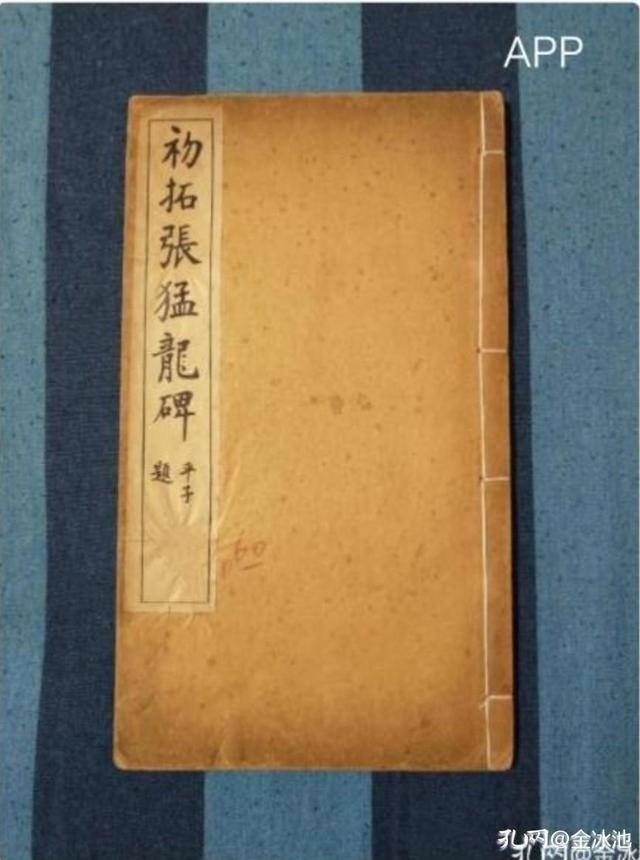 APP
初拓張猛龍碑
平子
題
60
孔网@金冰池